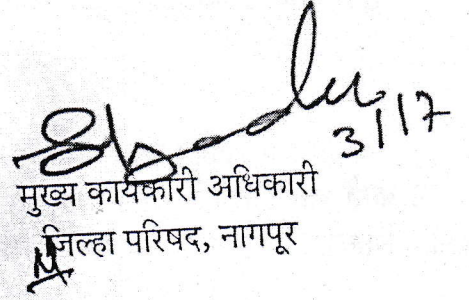 3/17
मुख्य कार्यकारी अधिकारी
जिल्हा परिषद, नागपूर